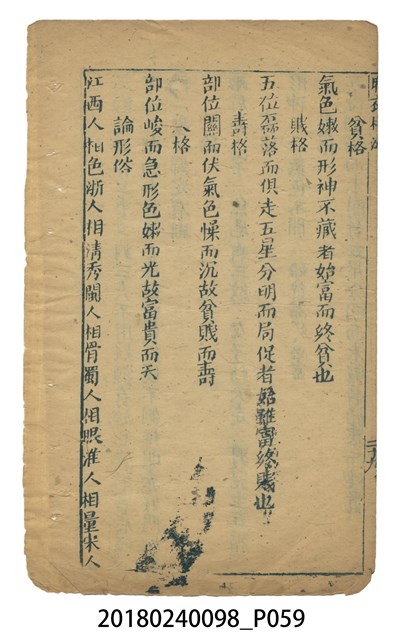 貧格
氣色嫩而形神不藏者始富而終貧也
賤格
五位磊落而俱走五星分明而局促者始雖富終賤也
壽格
部位闊而伏氣色慘而沉故貧賤而壽
格
部位峻而急形色嫩而光故富貴而夭
論形俗
江西人相色浙人相淸秀閩人相骨蜀人相眼淮人相量宋人
20180240098_P059